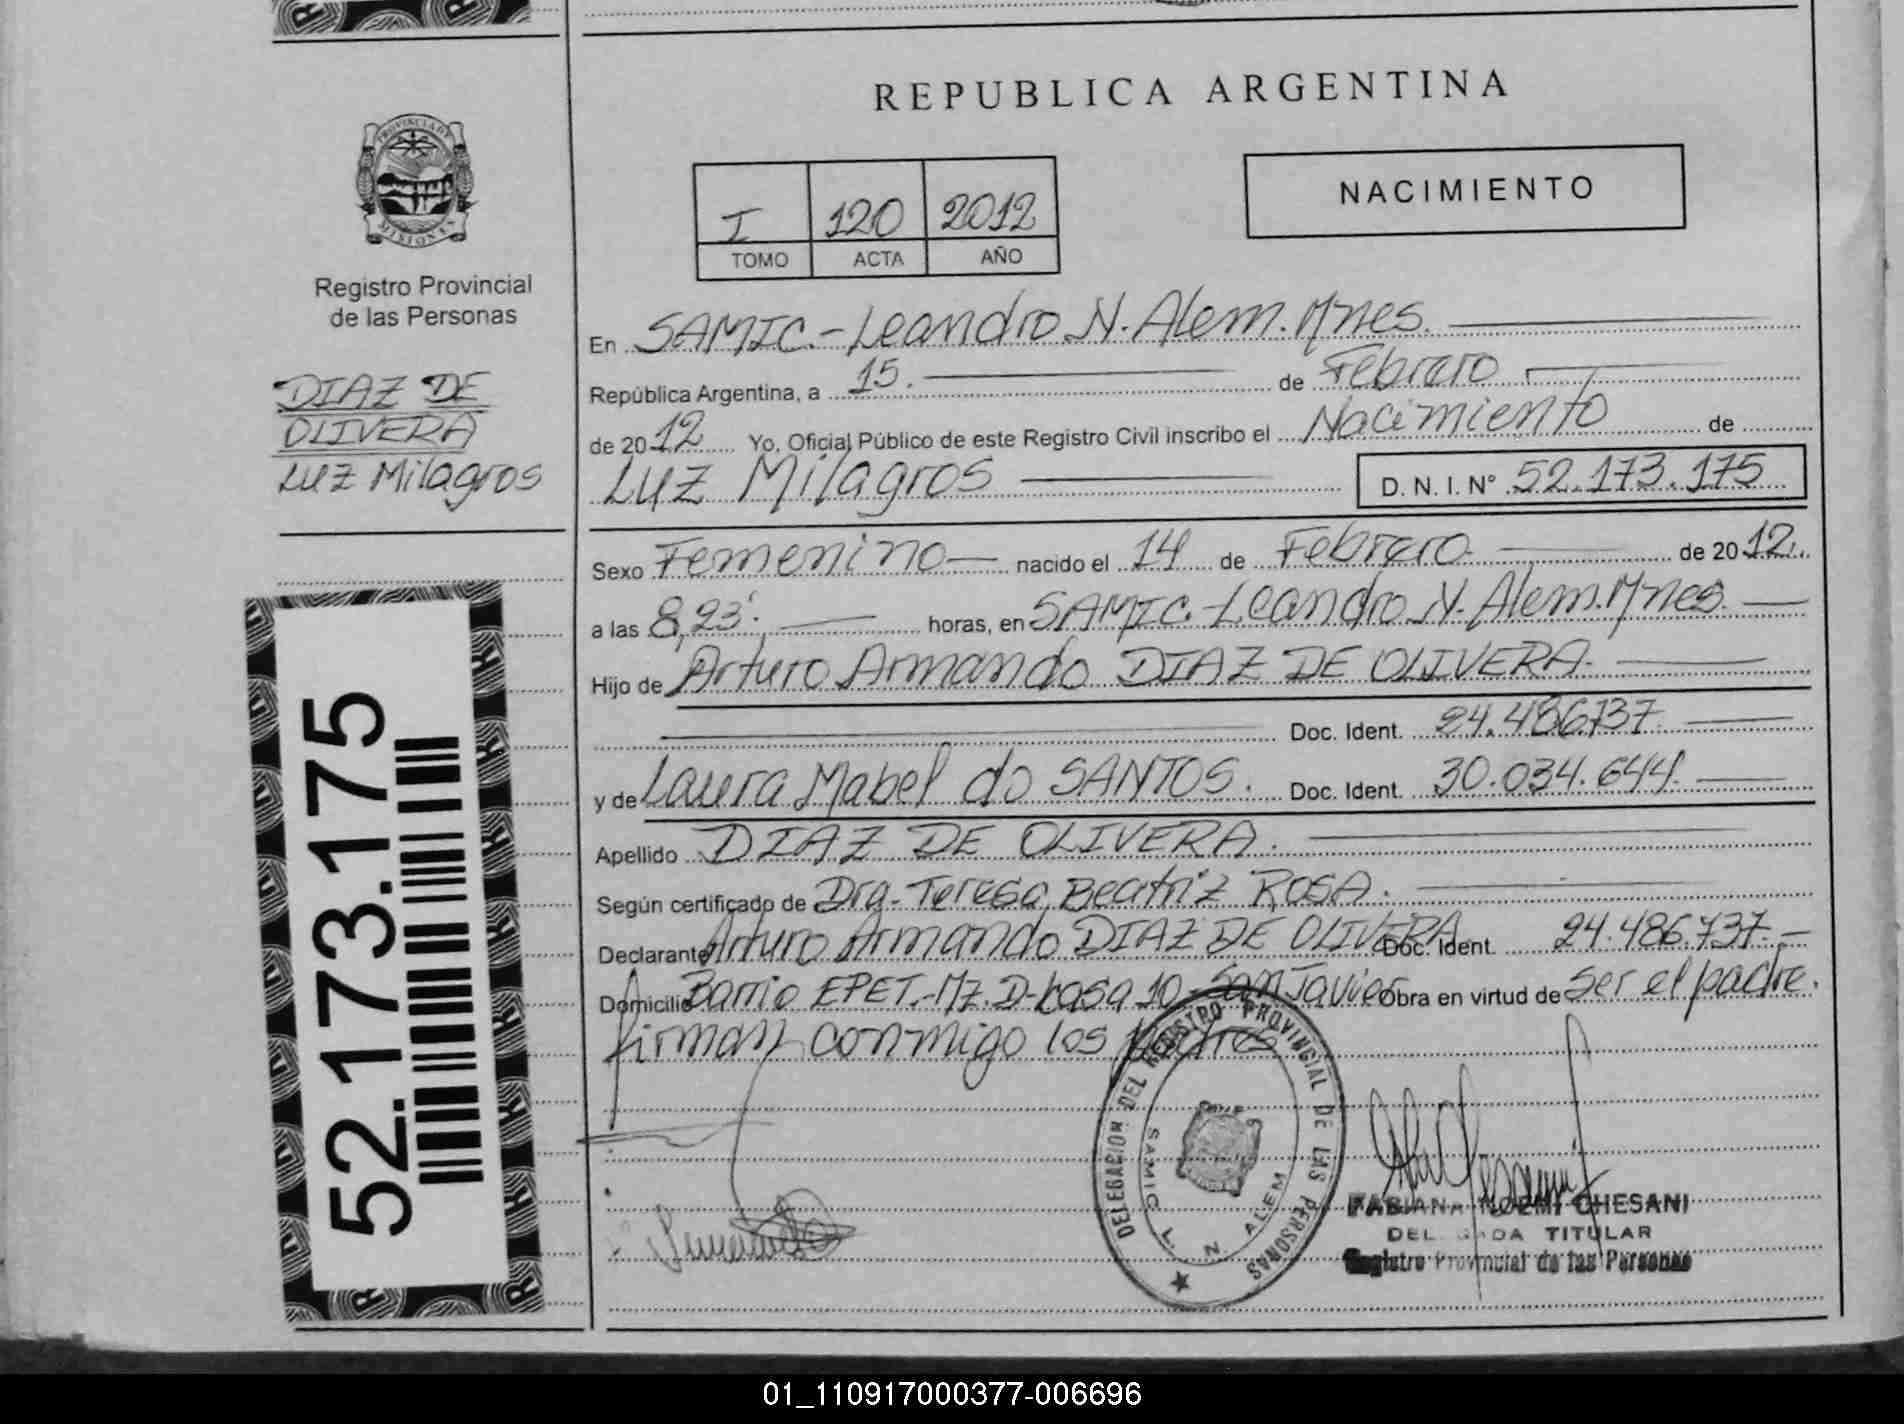 REPUBLICA ARGENTINA
PROVINCIA DE
MISIONES
Registro Provincial
de las Personas
DIAZ DE
OLIVERA
LUZ Milagros
52.173.175
I 120 2012
TOMO ACTA AÑO
NACIMIENTO
En SAMIC.-Leandro N. Alem. Mnes.
República Argentina, a 15. de Febrero
de 2012 Yo, Oficial Público de este Registro Civil inscribo el Nacimiento de
LUZ Milagros D. N. I. N° 52.173.175
Sexo Femenino nacido el 14 de Febrero de 2012.
a las 8,23'. horas, en SAMIC.-Leandro N. Alem. Mnes.
Hijo de Arturo Armando DIAZ DE OLIVERA.
Doc. Ident. 24.486.737.
y de Laura Mabel do SANTOS. Doc. Ident. 30.034.644.
Apellido DIAZ DE OLIVERA.
Según certificado de Dra. Teresa Beatriz ROSA.
Declarante Arturo Armando DIAZ DE OLIVERA Doc. Ident. 24.486.737.-
Domicilio Barrio EPET.-Mz. D-casa 10-San Javier Obra en virtud de ser el padre.
firman conmigo los padres
DELEGACION DEL REGISTRO PROVINCIAL DE LAS PERSONAS
SAMIC L. N. ALEM
FABIANA NOEMI CHESANI
DELEGADA TITULAR
Registro Provincial de las Personas
01_110917000377-006696